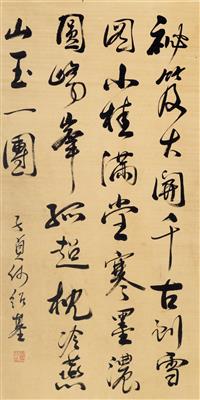 祕笈大開千古訓雪
圖小挂滿堂寒墨濃
圓嶠峯孤超枕冷燕
山玉一團
子貞何紹基